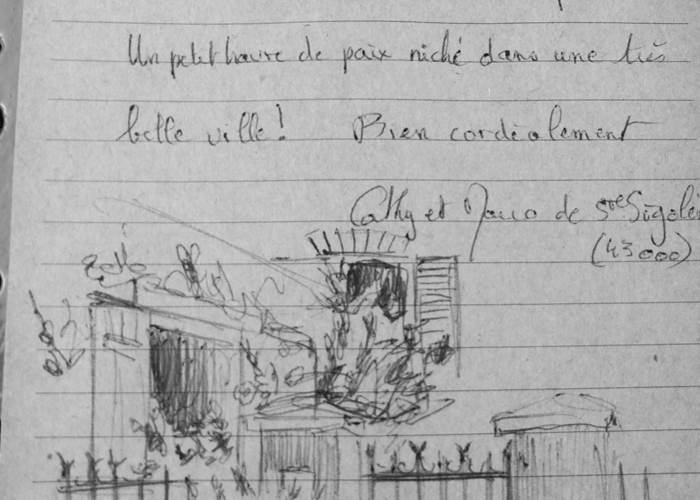 Un petit havre de paix niché dans une très
belle ville! Bien cordialement
Cathy et de Ste Sigolè
(43000)